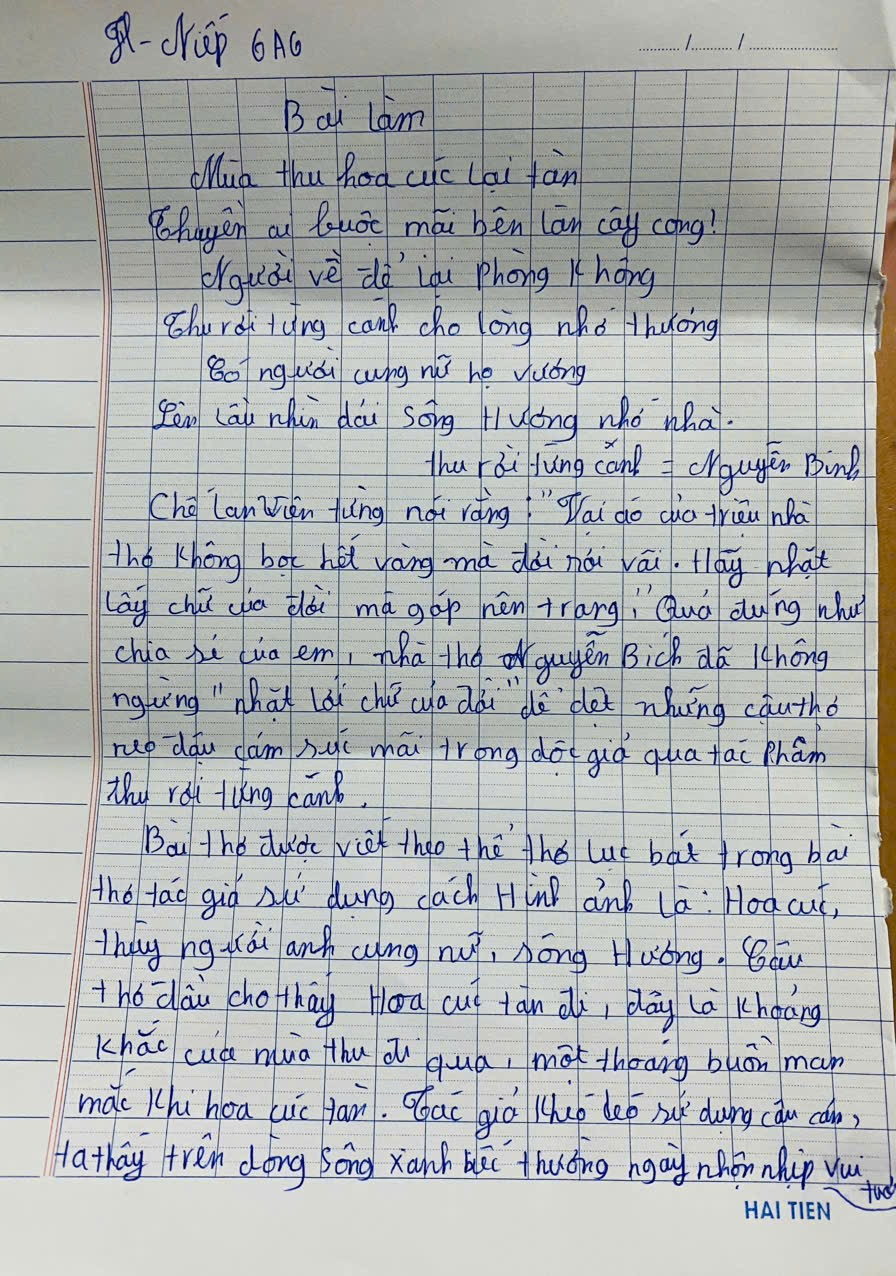 Niếp 6A6
Bài làm
Mùa thu hoa cúc lại tàn
Thuyền ai buộc mãi bên làn cây cong!
Người về để lại phòng không
Thu rơi từng cánh cho lòng nhớ thương
Có người cung nữ họ vương
Lên lầu nhìn dải sông Hương nhớ nhà.
thu rơi từng cánh = Nguyễn Bính
Chế Lan Viên từng nói rằng: "Vại áo của triệu nhà
thơ không bọc hết vàng mà đời rơi vãi. Hãy nhặt
lấy chữ của đời mà góp nên trang", Quả đúng như
chia sẻ của em, nhà thơ Nguyễn Bích đã không
ngừng "nhặt lời chữ của đời" để dệt những câu thơ
neo đậu cảm xúc mãi trong độc giả qua tác phẩm
thu rơi từng cánh.
Bài thơ được viết theo thể thơ lục bát trong bài
thơ tác giả sử dụng cách Hình ảnh là: Hoa cúc,
thủy người anh cung nữ, sông Hương. Câu
thơ đầu cho thấy Hoa cúc tàn đi, đây là khoảng
khắc của mùa thu đi qua, một thoáng buồn man
mác khi hoa cúc tàn. Tác giả khéo léo sử dụng câu cảm,
ta thấy trên dòng sông xanh biếc thường ngày nhộn nhịp vui
tươi
HAI TIEN